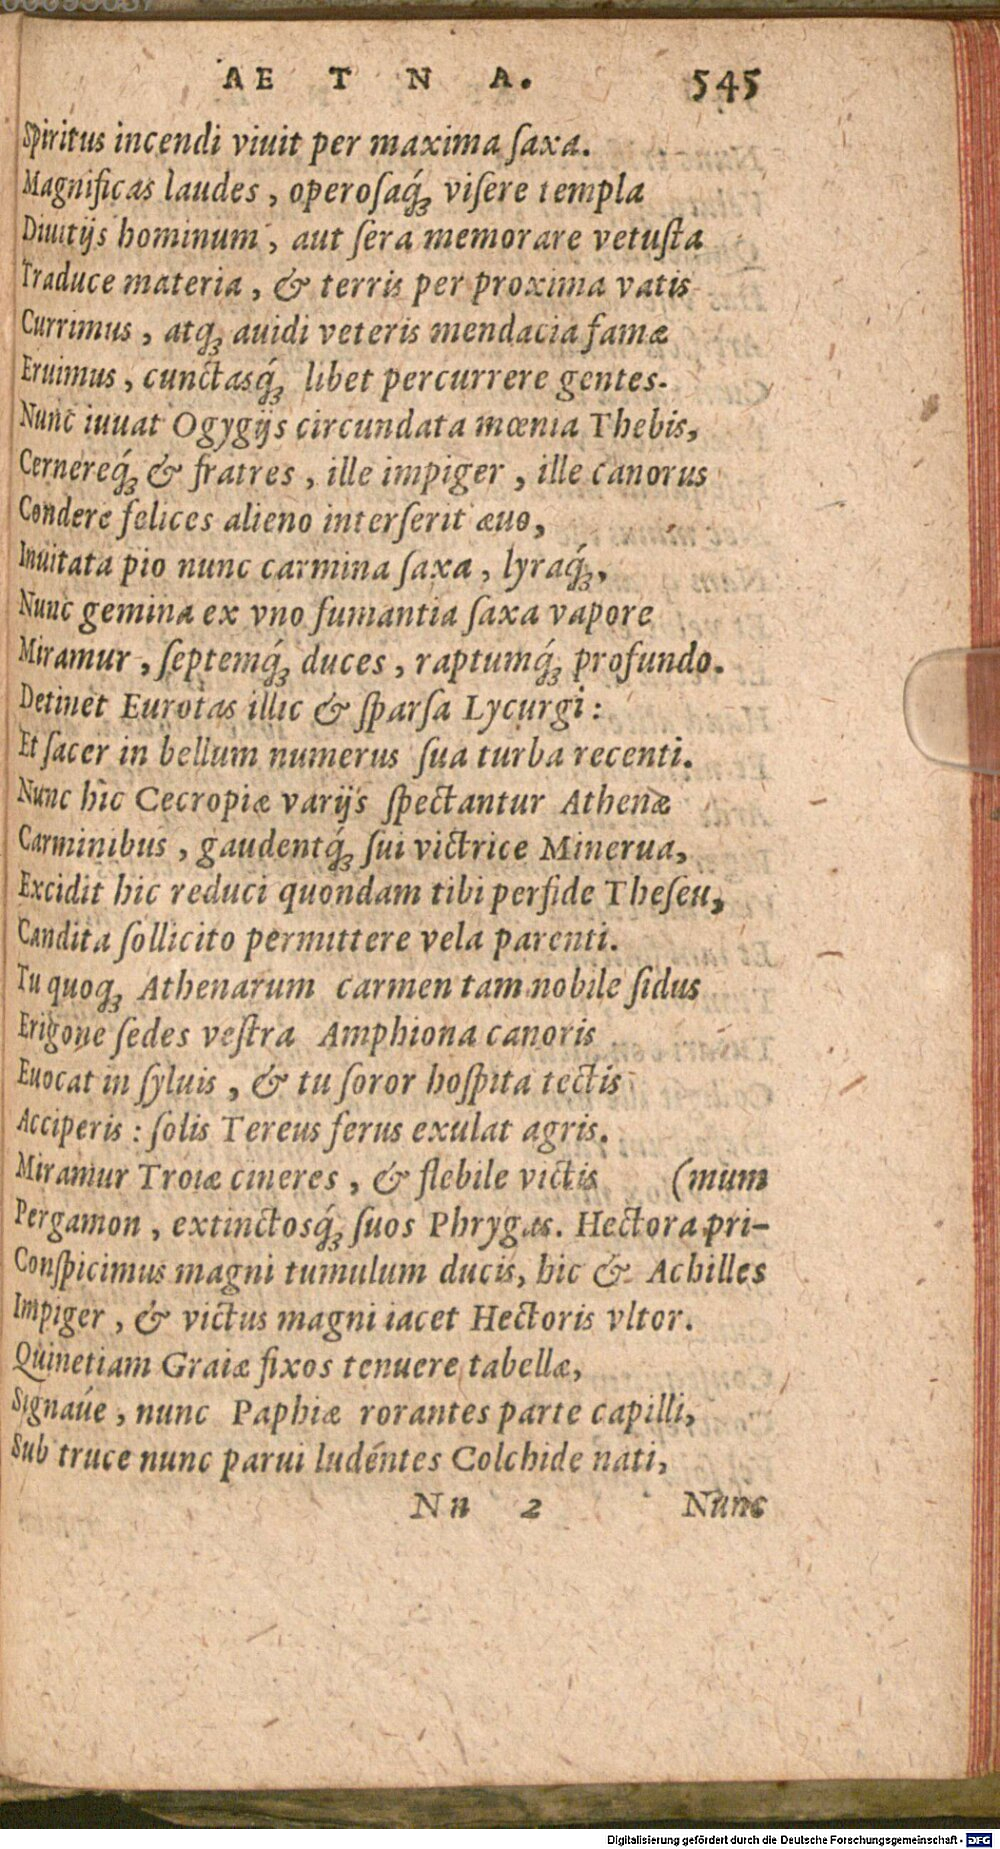 AETNA. 545
Spiritus incendi viuit per maxima ſaxa.
Magnificas laudes, operoſaq́ꝫ viſere templa
Diuitijs hominum, aut ſera memorare vetuſta
Traduce materia, & terris per proxima vatis
Currimus, atqꝫ auidi veteris mendacia famæ
Eruimus, cunctasq́ꝫ libet percurrere gentes.
Nunc iuuat Ogygijs circundata mœnia Thebis,
Cernereq́ꝫ & fratres, ille impiger, ille canorus
Condere felices alieno interſerit æuo,
Inuitata pio nunc carmina ſaxa, lyraq́ꝫ,
Nunc gemina ex vno fumantia ſaxa vapore
Miramur, ſeptemq́ꝫ duces, raptumq́ꝫ profundo.
Detinet Eurotas illic & ſparſa Lycurgi:
Et ſacer in bellum numerus ſua turba recenti.
Nunc hic Cecropiæ varijs ſpectantur Athenæ
Carminibus, gaudentq́ꝫ ſui victrice Minerua,
Excidit hic reduci quondam tibi perfide Theſeu,
Candita ſollicito permittere vela parenti.
Tu quoqꝫ Athenarum carmen tam nobile ſidus
Erigone ſedes veſtra Amphiona canoris
Euocat in ſyluis, & tu ſoror hoſpita tectis
Acciperis: ſolis Tereus ferus exulat agris.
Miramur Troiæ cineres, & flebile victis (mum
Pergamon, extinctosq́ꝫ ſuos Phrygas. Hectora pri-
Conſpicimus magni tumulum ducis, hic & Achilles
Impiger, & victus magni iacet Hectoris vltor.
Quinetiam Graiæ fixos tenuere tabellæ,
Signaúe, nunc Paphiæ rorantes parte capilli,
Sub truce nunc parui ludéntes Colchide nati,
Nn 2 Nunc
Digitalisierung gefördert durch die Deutsche Forschungsgemeinschaft - DFG